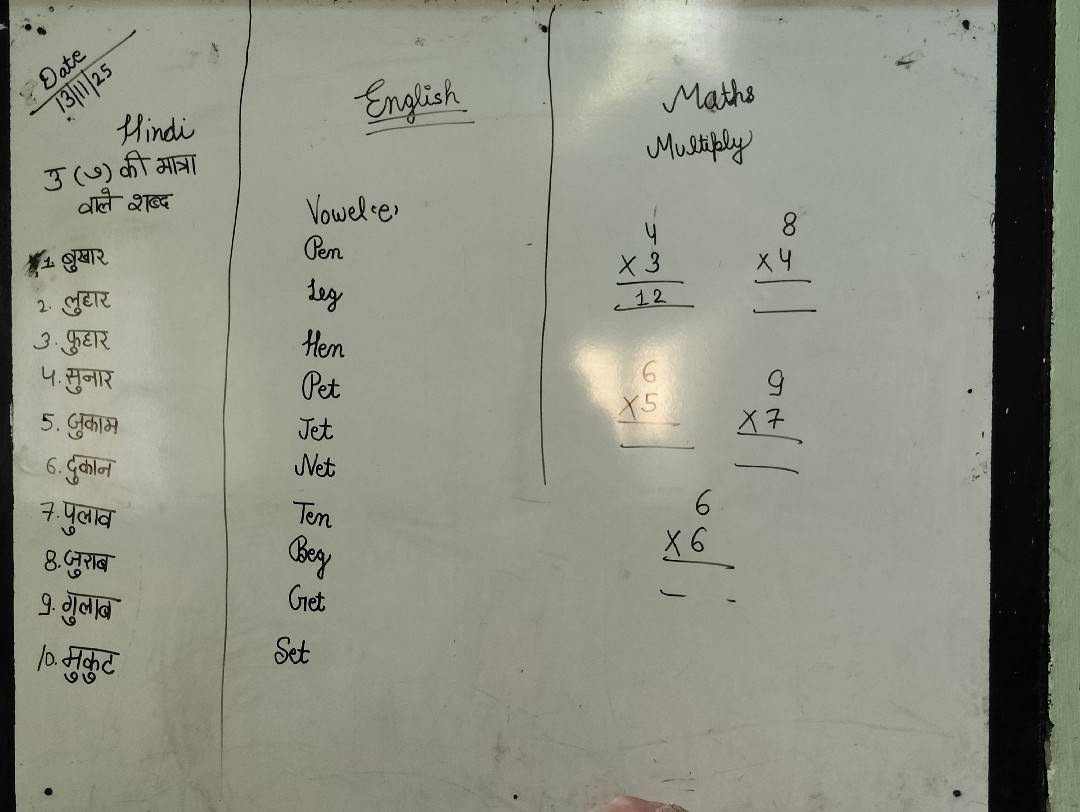 Date
13/11/25
Hindi
उ (ु) की मात्रा
वाले शब्द
1. बुखार
2. लुहार
3. फुहार
4. सुनार
5. जुकाम
6. दुकान
7. पुलाव
8. जुराब
9. गुलाब
10. मुकुट
English
Vowel 'e'
Pen
Leg
Hen
Pet
Jet
Net
Ten
Beg
Get
Set
Maths
Multiply
4 8
×3 ×4
12
6 9
×5 ×7
6
×6